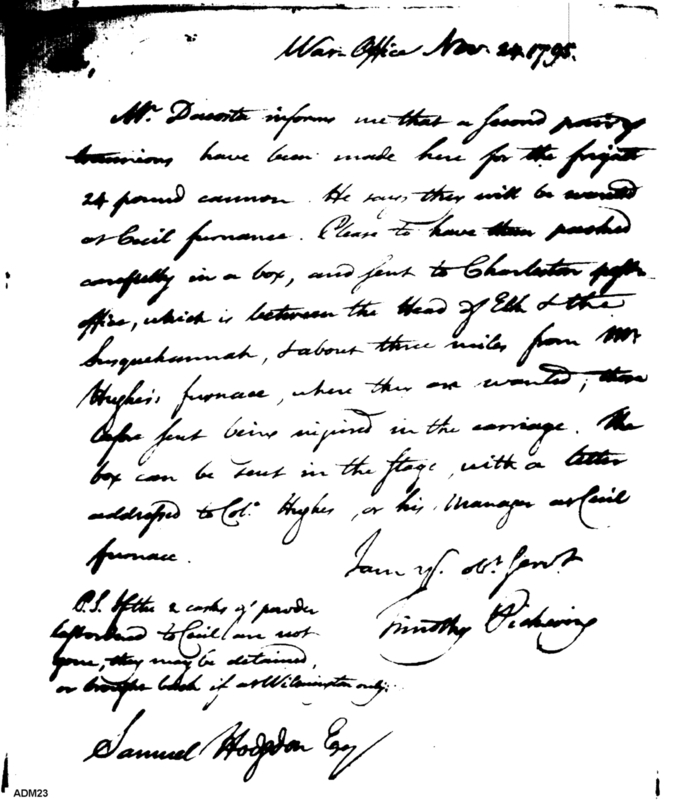 War Office Nov. 24. 1795.
Mr. Dacosta informs me that a second pair of
trunnions have been made here for the frigate
24 pound cannon. He says they will be wanted
at Cecil furnance. Please to have them packed
carefully in a box, and sent to Charleston post-
office, which is between the Head of Elk & the
Susquehannah, & about three miles from Mr
Hughes's furnace, where they are wanted; those
before sent being injured in the carriage. The
box can be sent in the stage, with a letter
addressed to Colo. Hughes, or his Manager at Cecil
furnace.
I am yr. obt. servt.
Timothy Pickering
P.S. If the 2 casks of powder
last ordered to Cecil are not
gone, they may be detained,
or brought back if at Wilmington only.
Samuel Hodgdon Esq
ADM23